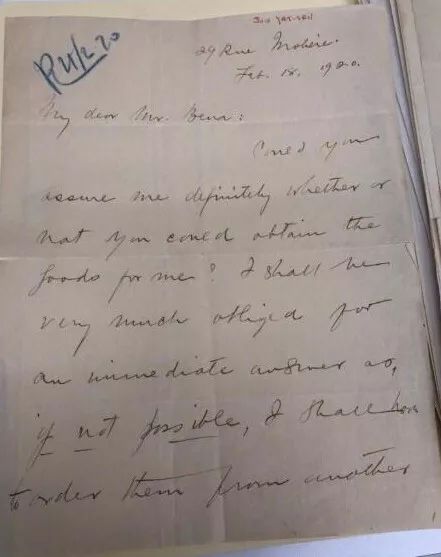 SUN YAT-SEN
R 4/2 20
29 Rue Molière.
Feb. 18. 1920.
My dear Mr. Bena:
Could you
assure me definitely whether or
not you could obtain the
goods for me? I shall be
very much obliged for
an immediate answer as,
if not possible, I shall have
to order them from another